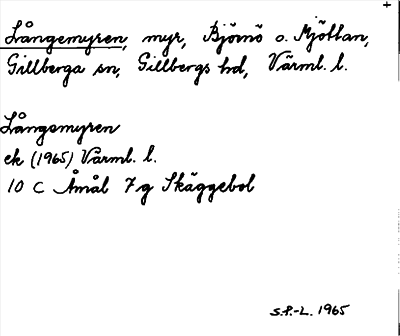 Långemyren, myr, Björnö o. Mjöttan,
Gillberga sn, Gillbergs hd, Värml. l.
Långemyren
ek (1965) Värml. l.
10 C Åmål 7g Skäggebol
S.P.-L. 1965